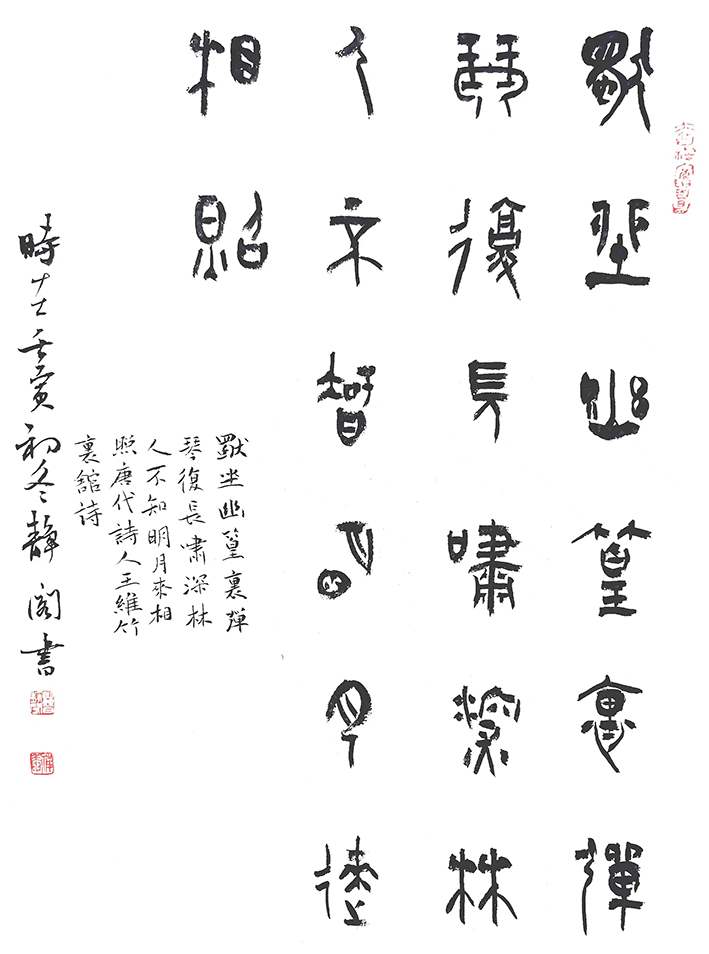 獨坐幽篁裏彈
琴復長嘯深林
人不知明月來
相照
獨坐幽篁裏彈
琴復長嘯深林
人不知明月來相
照唐代詩人王維竹
裏舘詩
時在壬寅初冬靜閣書